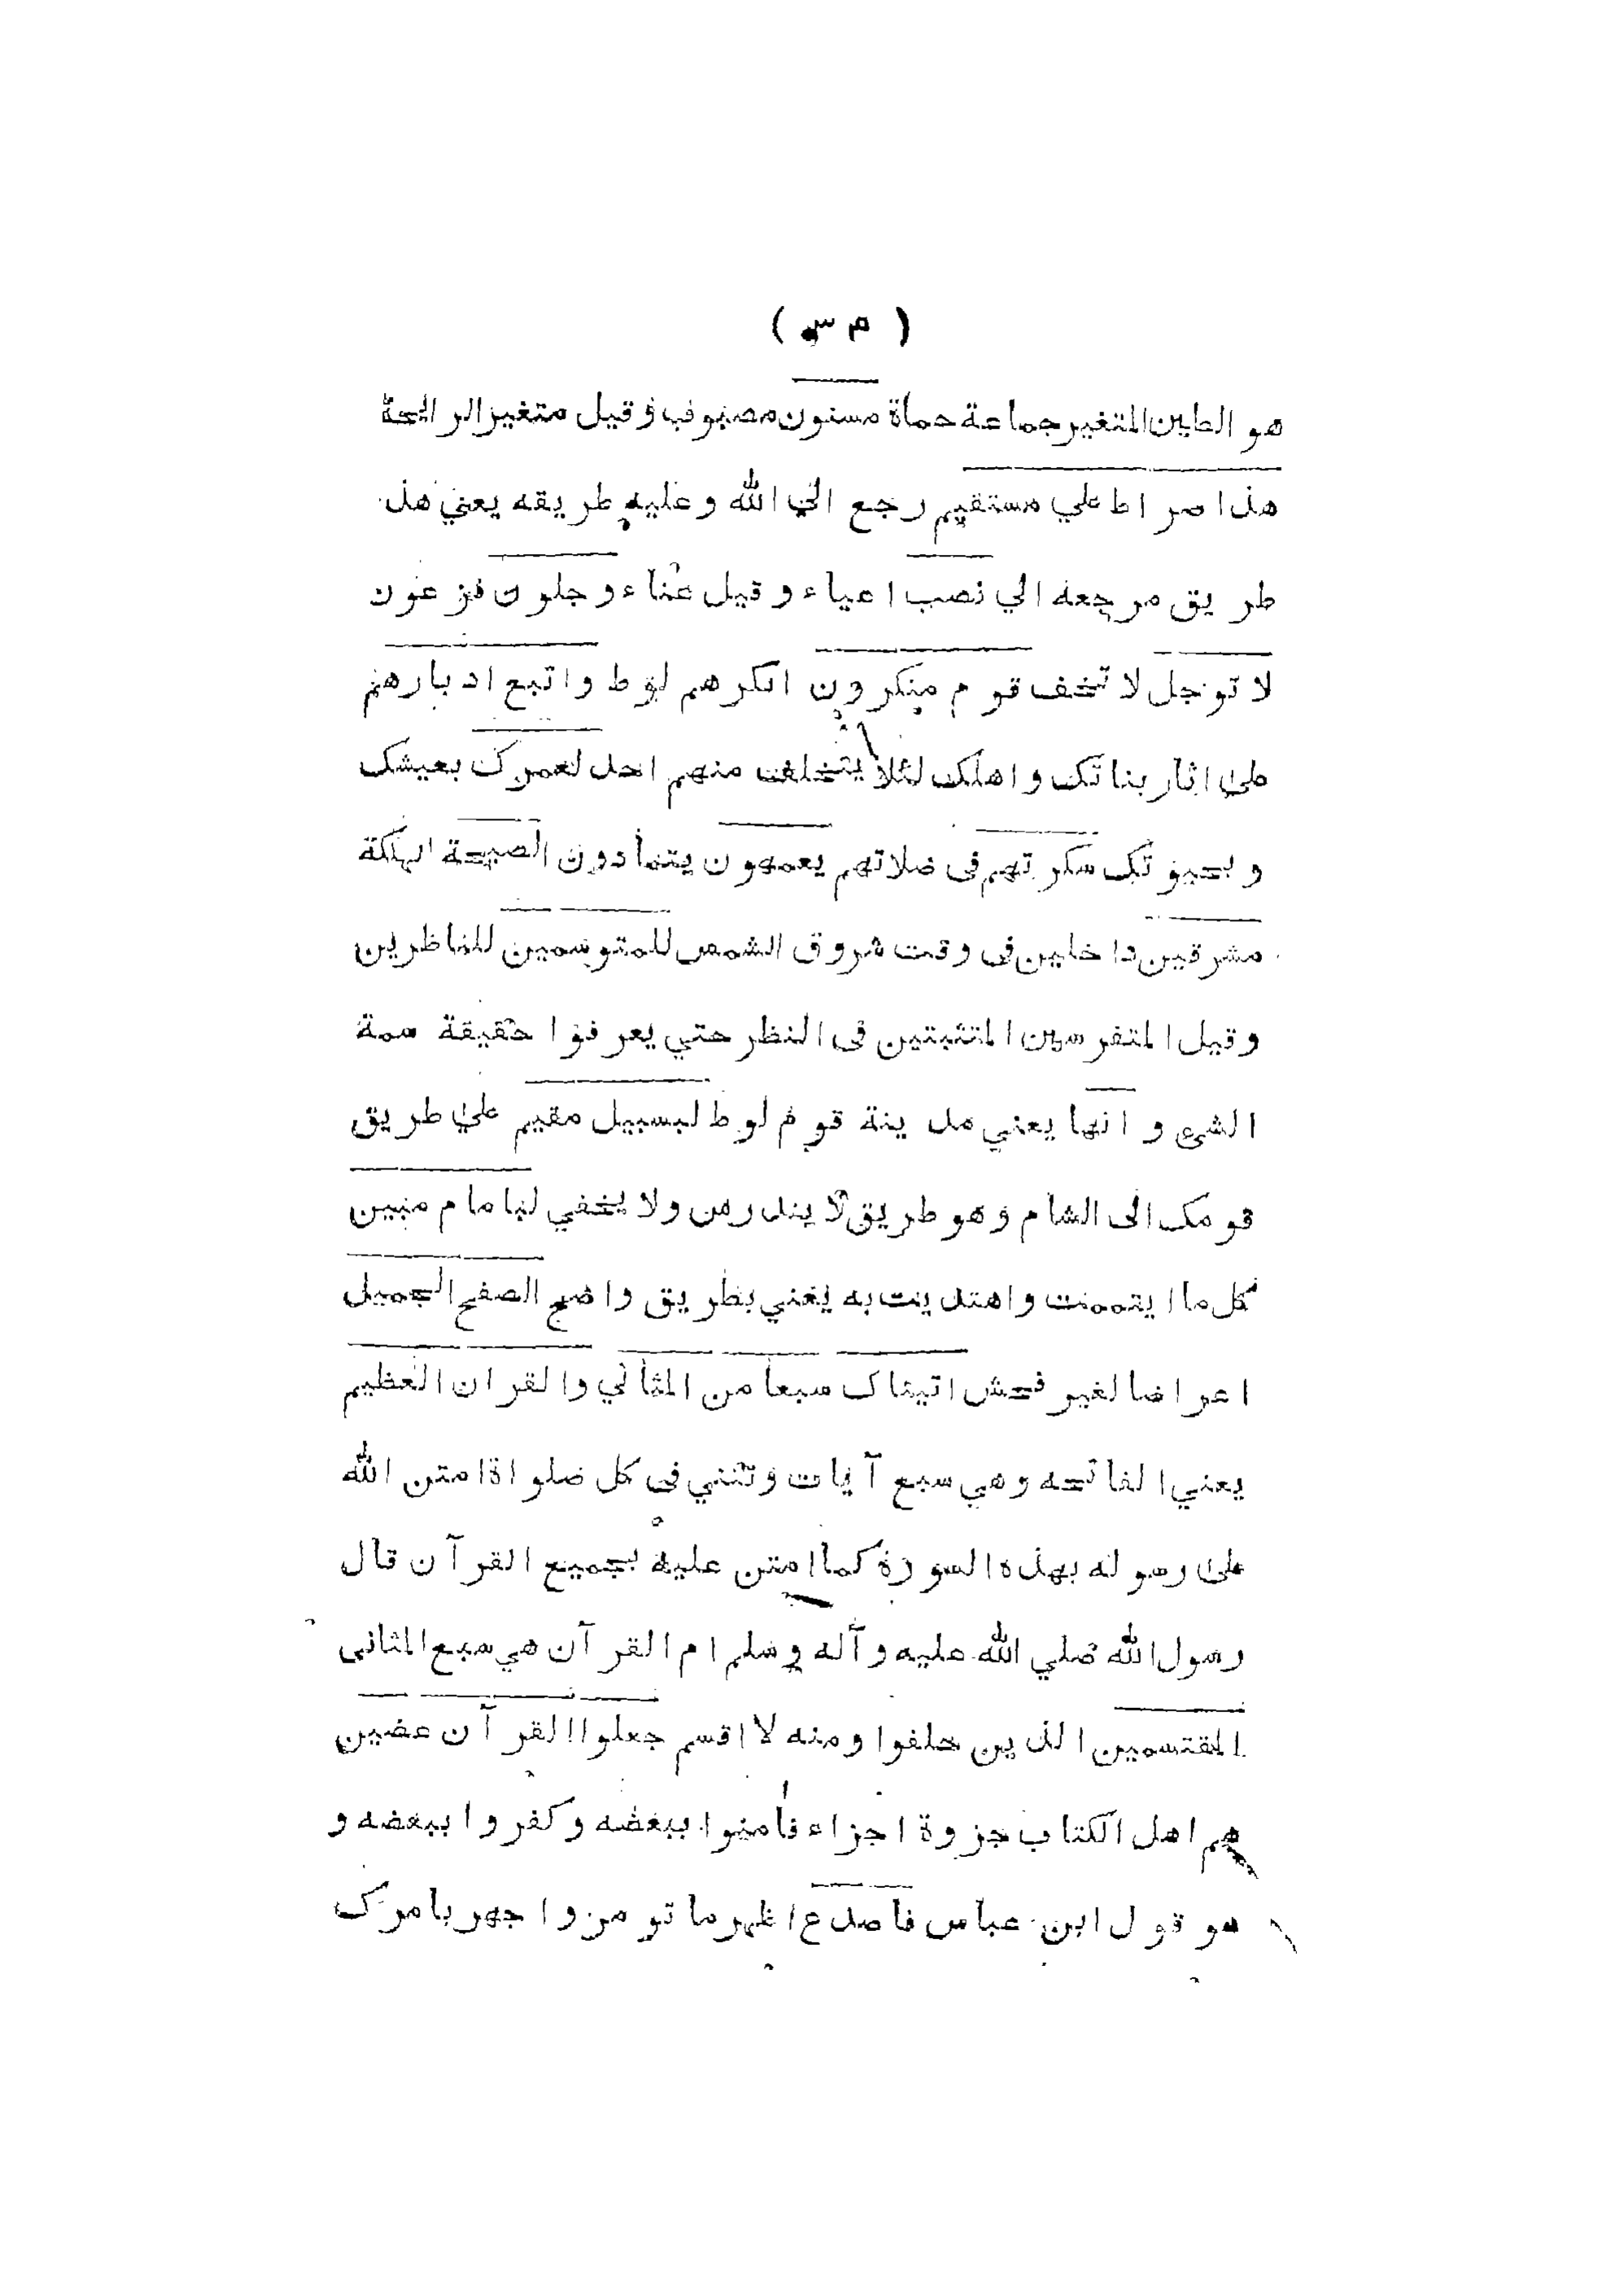 ( م س )
هو الطين المتغير جماعة حماة مسنون مصبوب وقيل متغير الرائحة
هذا صراط علي مستقيم رجع الي الله وعليه طريقه يعني هذ
طريق مرجعه الي نصب اعياء وقيل عناء وجلون فزعون
لا توجل لا تخف قوم منكرون انكرهم لوط واتبع ادبارهم
علي اثار بناتك واهلك لئلا يتخلف منهم احد لعمرك بعيشك
و بحيوتك سكرتهم في ضلاتهم يعمهون يتمادون الصيحة الهلكة
مشرقين داخلين في وقت شروق الشمس للمتوسمين للناظرين
وقيل المتفرسين المتثبتين في النظر حتي يعرفوا حقيقة سمة
الشيء و انها يعني مدينة قوم لوط لبسبيل مقيم علي طريق
قومك الى الشام وهو طريق لا يندرس ولا يخفي لبامام مبين
كل ما ايتممت واهتديت به يعني بطريق واضح الصفح الجميل
اعراضا لغير فحش اتيناك سبعا من المثاني والقران العظيم
يعني الفاتحه وهي سبع آيات وتثني في كل صلواة امتن الله
على رسوله بهذه السورة كما امتن عليه بجميع القرآن قال
رسول الله صلي الله عليه وآله وسلم ام القرآن هي سبع المثانى
المقتسمين الذين حلفوا ومنه لا اقسم جعلوا القرآن عضين
هم اهل الكتاب جزوة اجزاء فأمنوا ببعضه وكفروا ببعضه و
هو قول ابن عباس فاصدع اظهر ما تومر واجهر بامرك